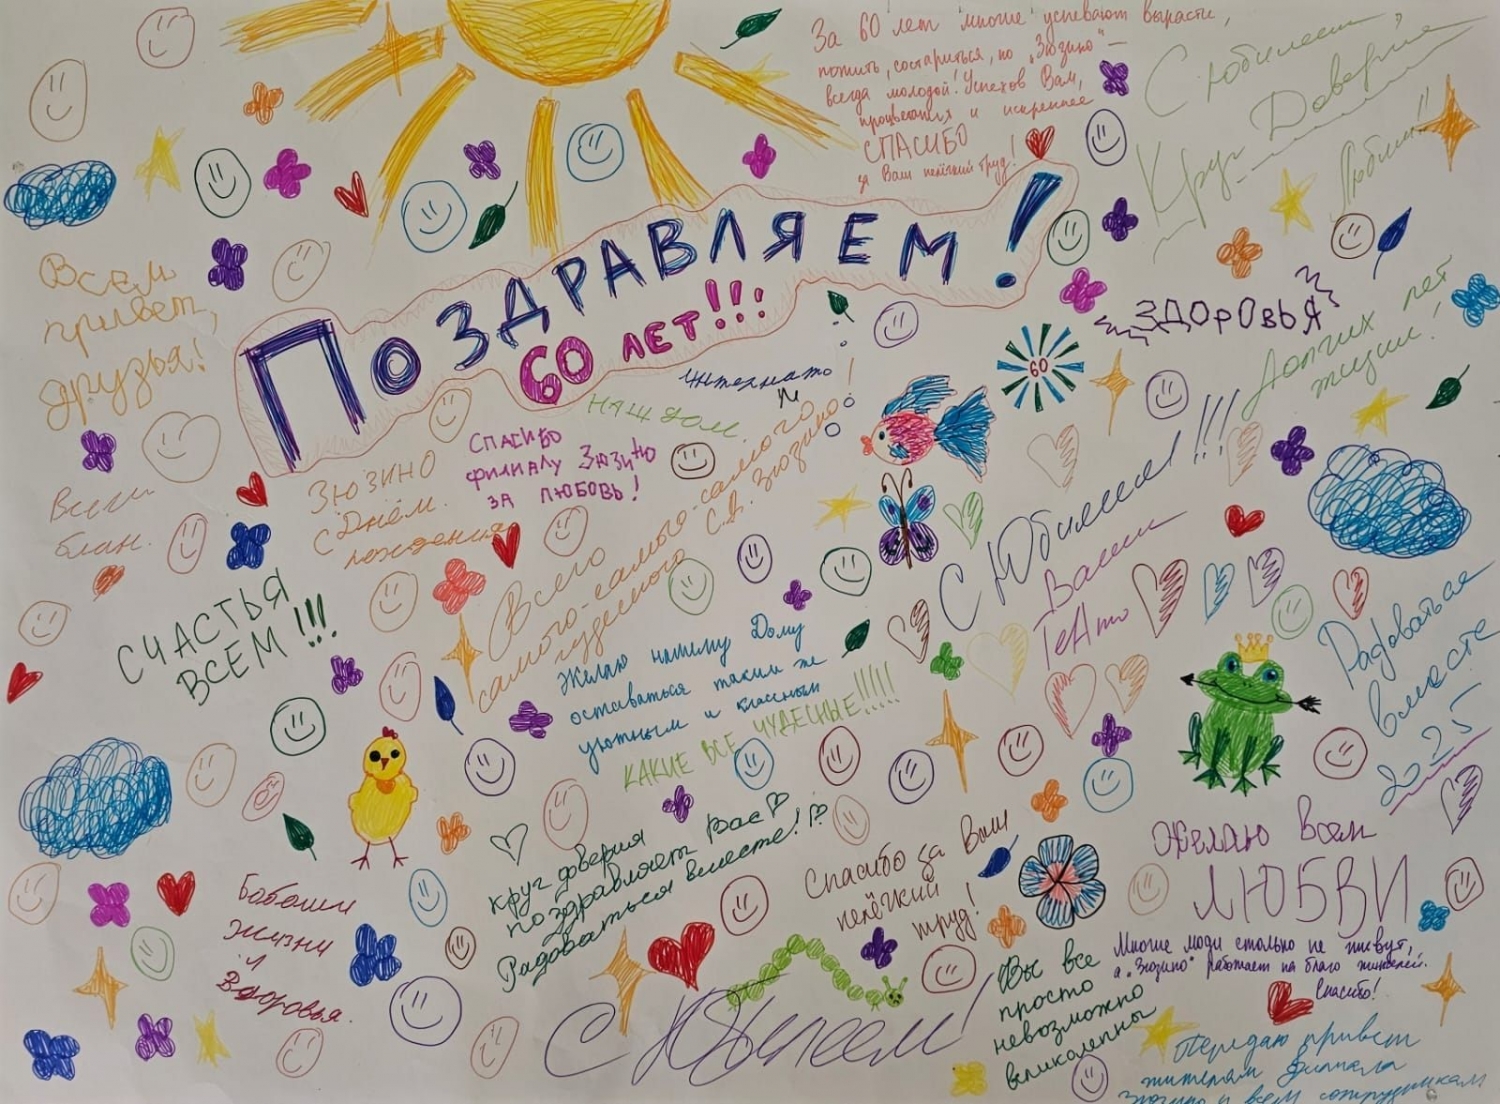 За 60 лет многие успевают вырасти,
пожить, состариться, но „Зюзино" —
всегда молодой! Успехов Вам,
процветания и искреннее
СПАСИБО
за Ваш нелёгкий труд!
С Юбилеем,
Круг Доверия
Любим!!
ПОЗДРАВЛЯЕМ!
60 ЛЕТ!!!
Всем
привет,
друзья!
ЗДОРОВЬЯ
Долгих лет
жизни!
60
НАШ ДОМ.
СПАСИБО
филиалу Зюзино
за любовь!
ЗЮЗИНО
с Днём
рождения
Всех
благ.
Всего
самого-самого-самого
чудесного С.Д. Зюзино
С Юбилеем!!!
Ваши
СЧАСТЬЯ
ВСЕМ!!!
Желаю нашему Дому
оставаться таким же
уютным и классным
КАКИЕ ВСЕ ЧУДЕСНЫЕ!!!!!
Радоваться
вместе
2025
круг доверия
поздравляет Вас
Радоваться вместе!
Спасибо за Ваш
нелёгкий
труд!
Желаю всем
ЛЮБВИ
жизни
и
Здоровья.
Многие люди столько не живут,
а „Зюзино" работает на благо жителей.
Спасибо!
Вы все
просто
невозможно
великолепны
С Юбилеем!
Передаю привет
жителям Филиала
Зюзино и всем сотрудникам